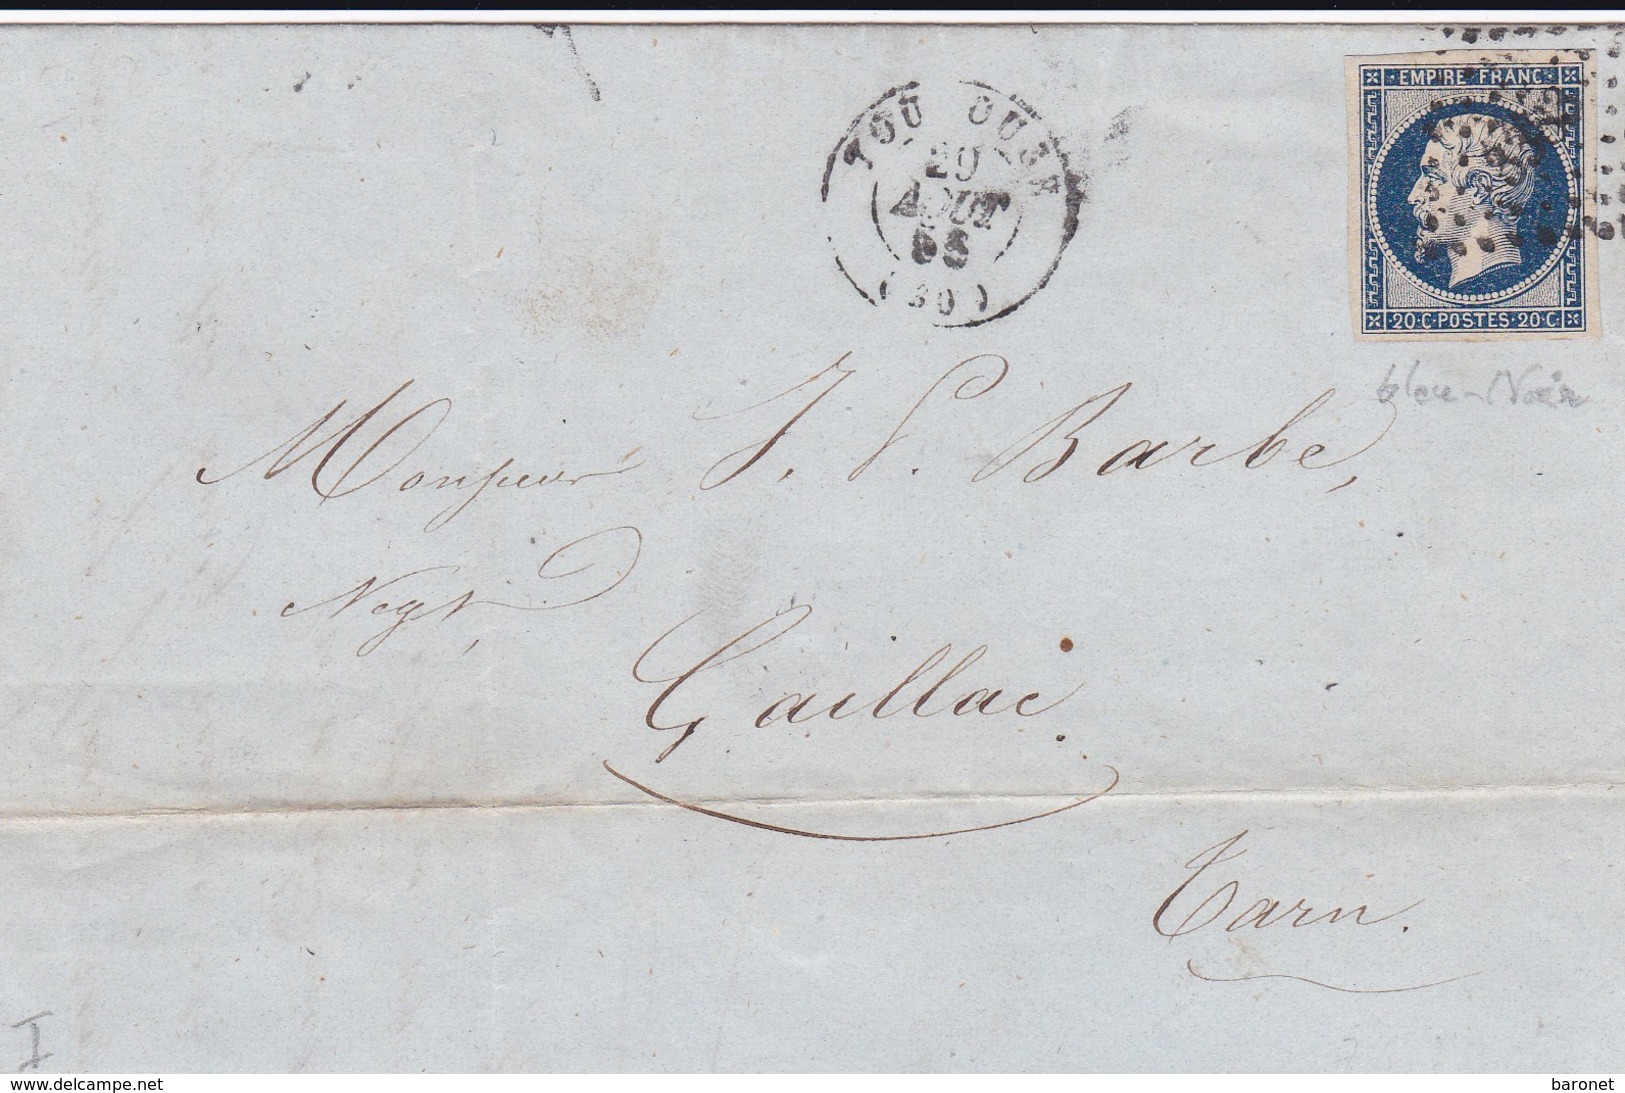 EMPIRE FRANC
20·C·POSTES·20·C
TOU OUSE
AOUT
(30)
bleu-Noir
Monsieur J. P. Barbe,
Negt,
Gaillac.
Tarn.
I
www.delcampe.net
baronet